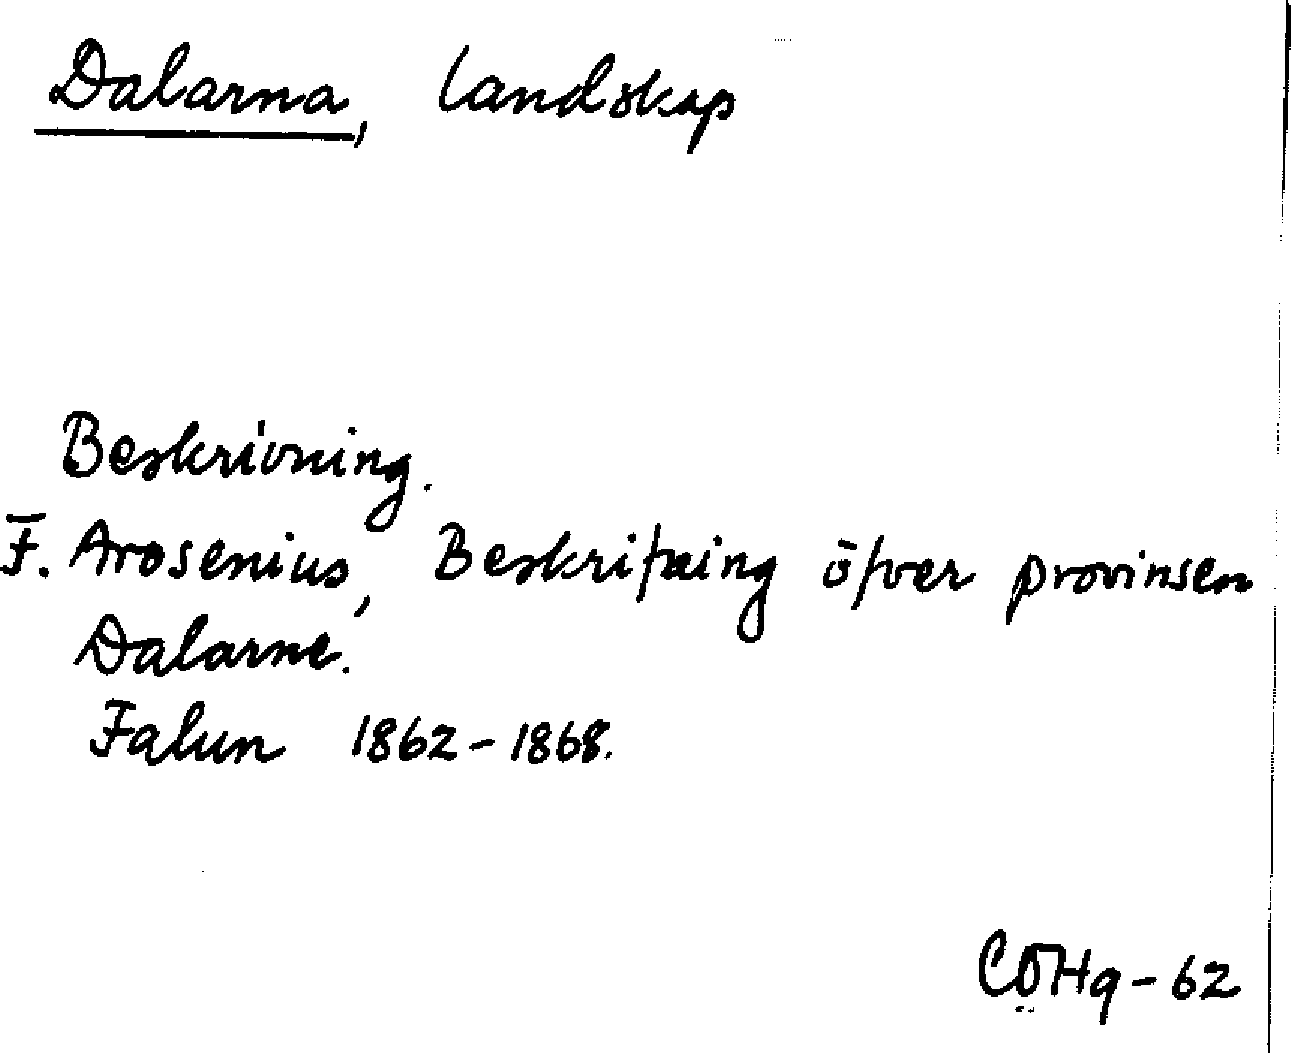 Dalarna, landskap
Beskrivning.
F. Arosenius, Beskrifning öfver provinsen
Dalarne.
Falun 1862-1868.
CÖHg-62